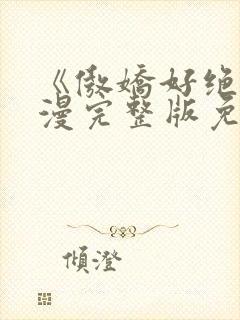 《傲嬌好絶
漫完整版免
傾澄